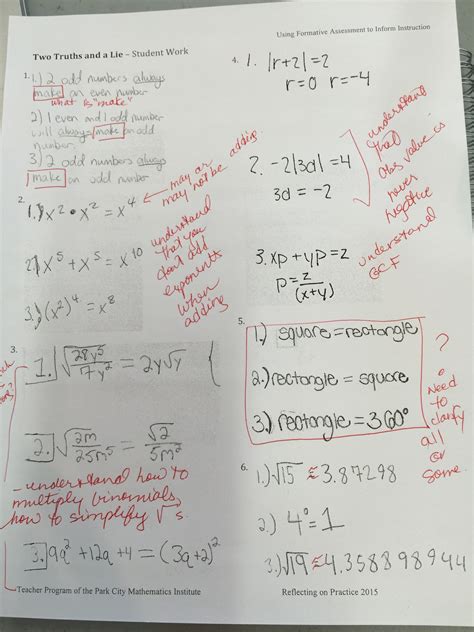 Using Formative Assessment to Inform Instruction
Two Truths and a Lie – Student Work
1. 1.) 2 odd numbers always
make an even number
what is "make"
2) 1 even and 1 odd number
will always make an odd
number.
3.) 2 odd numbers always
make an odd number
2.
1.) x² • x² = x⁴
← may or
may not be adding.
2.) x⁵ + x⁵ = x¹⁰
understand
that you
don't add
exponents
when
adding
3.) (x²)⁴ = x⁸
3.
1. √(28y⁵/7y²) = 2y√y
2. √(2m/25m⁵) = √2/5m²
understand how to
multiply binomials,
how to simplify √s.
3. 9a² + 12a + 4 = (3a+2)²
4. 1. |r+2| = 2
r=0 r=-4
2. -2|3d| = 4
3d = -2
understand
that
abs value is
never
negative
3. xp + yp = z
p = z/(x+y)
understand
GCF
5.
1.) square = rectangle
2.) rectangle = square
3.) rectangle = 360°
?
Need
to
clarify
all
or
some.
6.
1.) √15 ≈ 3.87298
2.) 4⁰ = 1
3.) √19 ≈ 4.358898944
Teacher Program of the Park City Mathematics Institute
Reflecting on Practice 2015